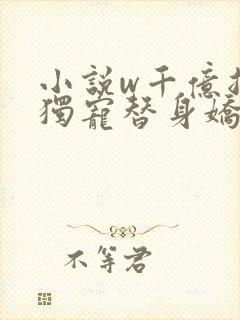 小說w千億
獨寵替身嬌
不等君